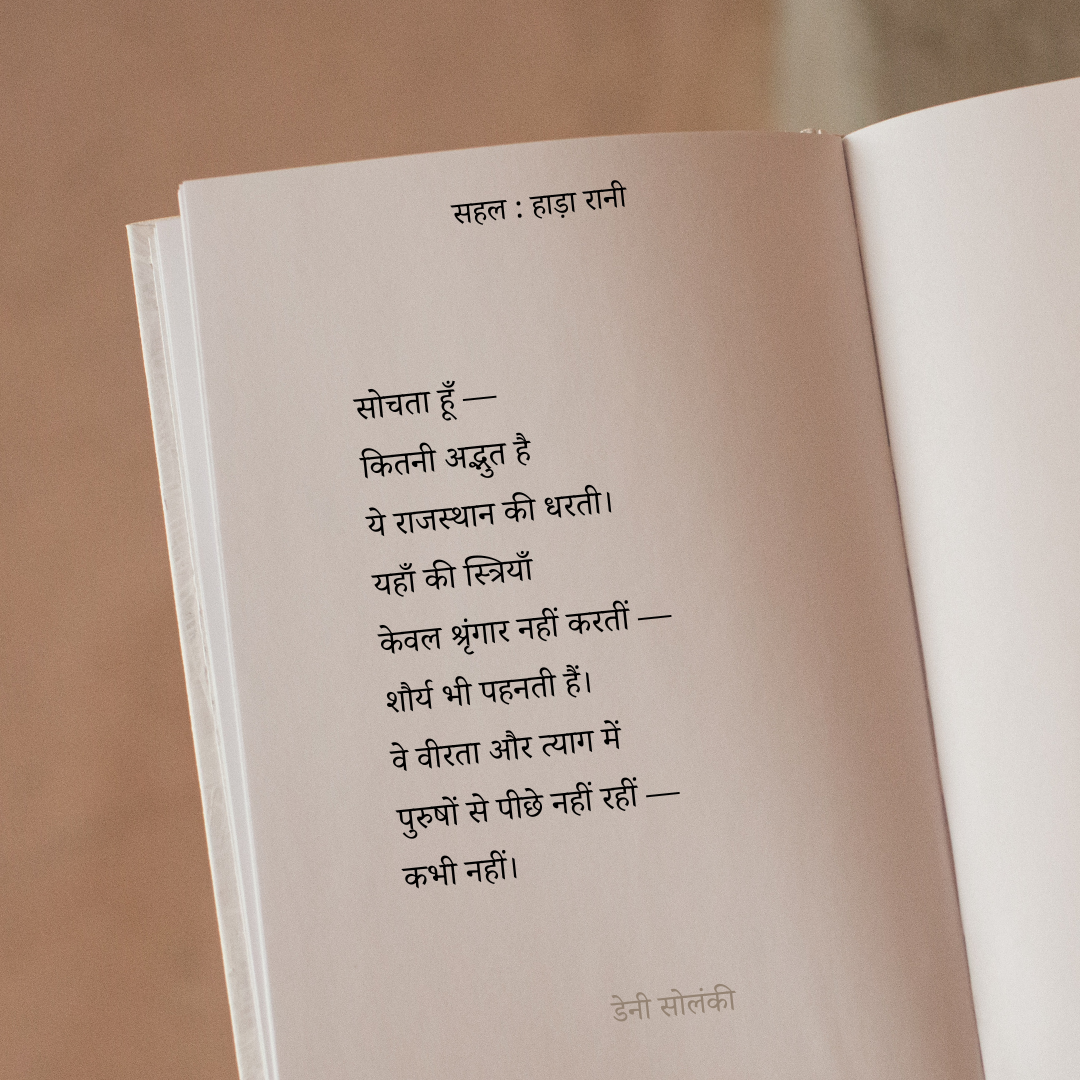 सहल : हाड़ा रानी
सोचता हूँ —
कितनी अद्भुत है
ये राजस्थान की धरती।
यहाँ की स्त्रियाँ
केवल श्रृंगार नहीं करतीं —
शौर्य भी पहनती हैं।
वे वीरता और त्याग में
पुरुषों से पीछे नहीं रहीं —
कभी नहीं।
डेनी सोलंकी